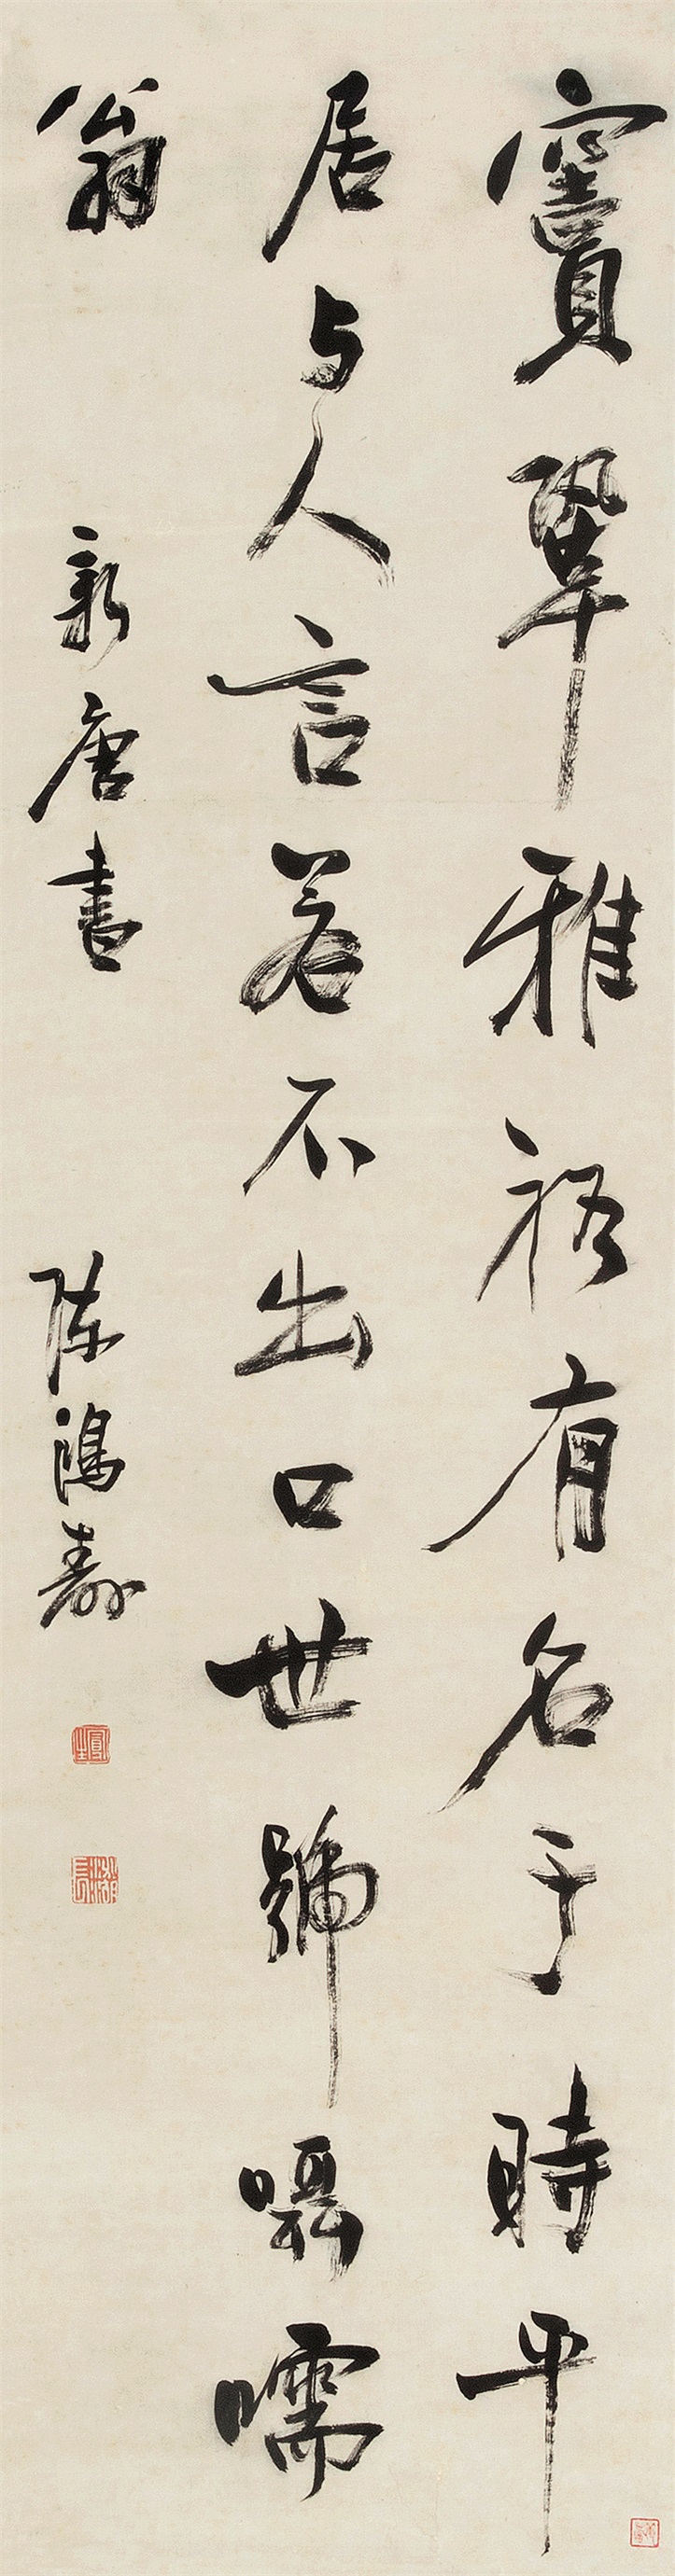 竇鞏雅裕有名于時平
居与人言若不出口世號囁嚅
翁 新唐書 陳鴻壽